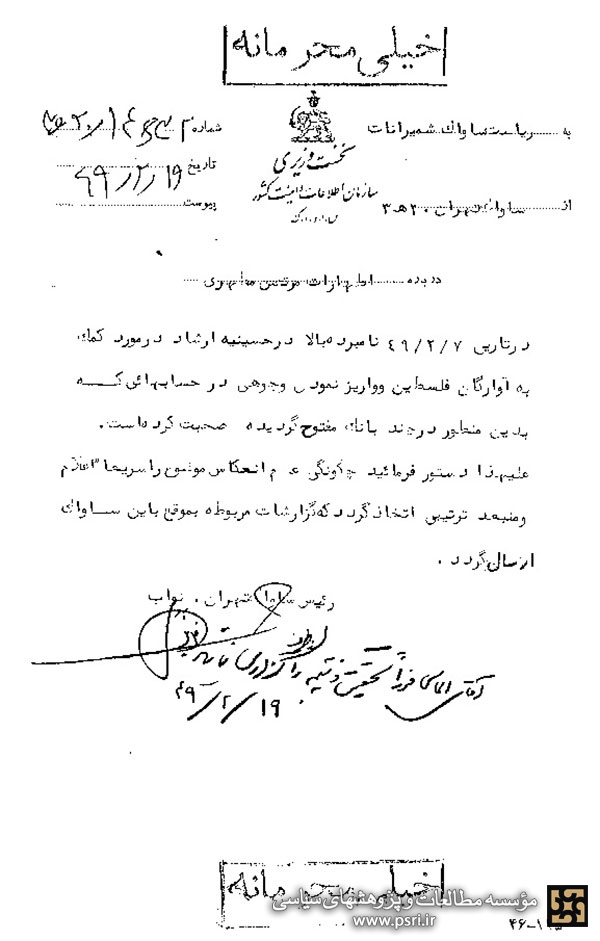 خیلی محرمانه
به ریاست ساواك شمیرانات
نخست وزیری
سازمان اطلاعات و امنیت کشور
س.ا.و.ا.ك
شماره
تاریخ ۴۹/۲/۱۹
پیوست
از ساواك تهران ۲۰ هـ ۳
درباره اظهارات مرتضی مطهری
در تاریخ ۴۹/۲/۷ نامبرده بالا در حسینیه ارشاد در مورد کمك
به آوارگان فلسطین و واریز نمودن وجوهی در حسابهائی که
بدین منظور در چند بانك مفتوح گردیده صحبت کرده است.
علیهذا دستور فرمائید چگونگی عدم انعکاس موضوع را سریعا" اعلام
ومنبعد ترتیبی اتخاذ گردد که گزارشات مربوطه بموقع باین ساواك
ارسال گردد.
رئیس ساواك تهران. نواب
آقای تحقیق و نتیجه را گزارش
۴۹/۲/۱۹
خیلی محرمانه
مؤسسه مطالعات و پژوهشهای سیاسی
www.psri.ir